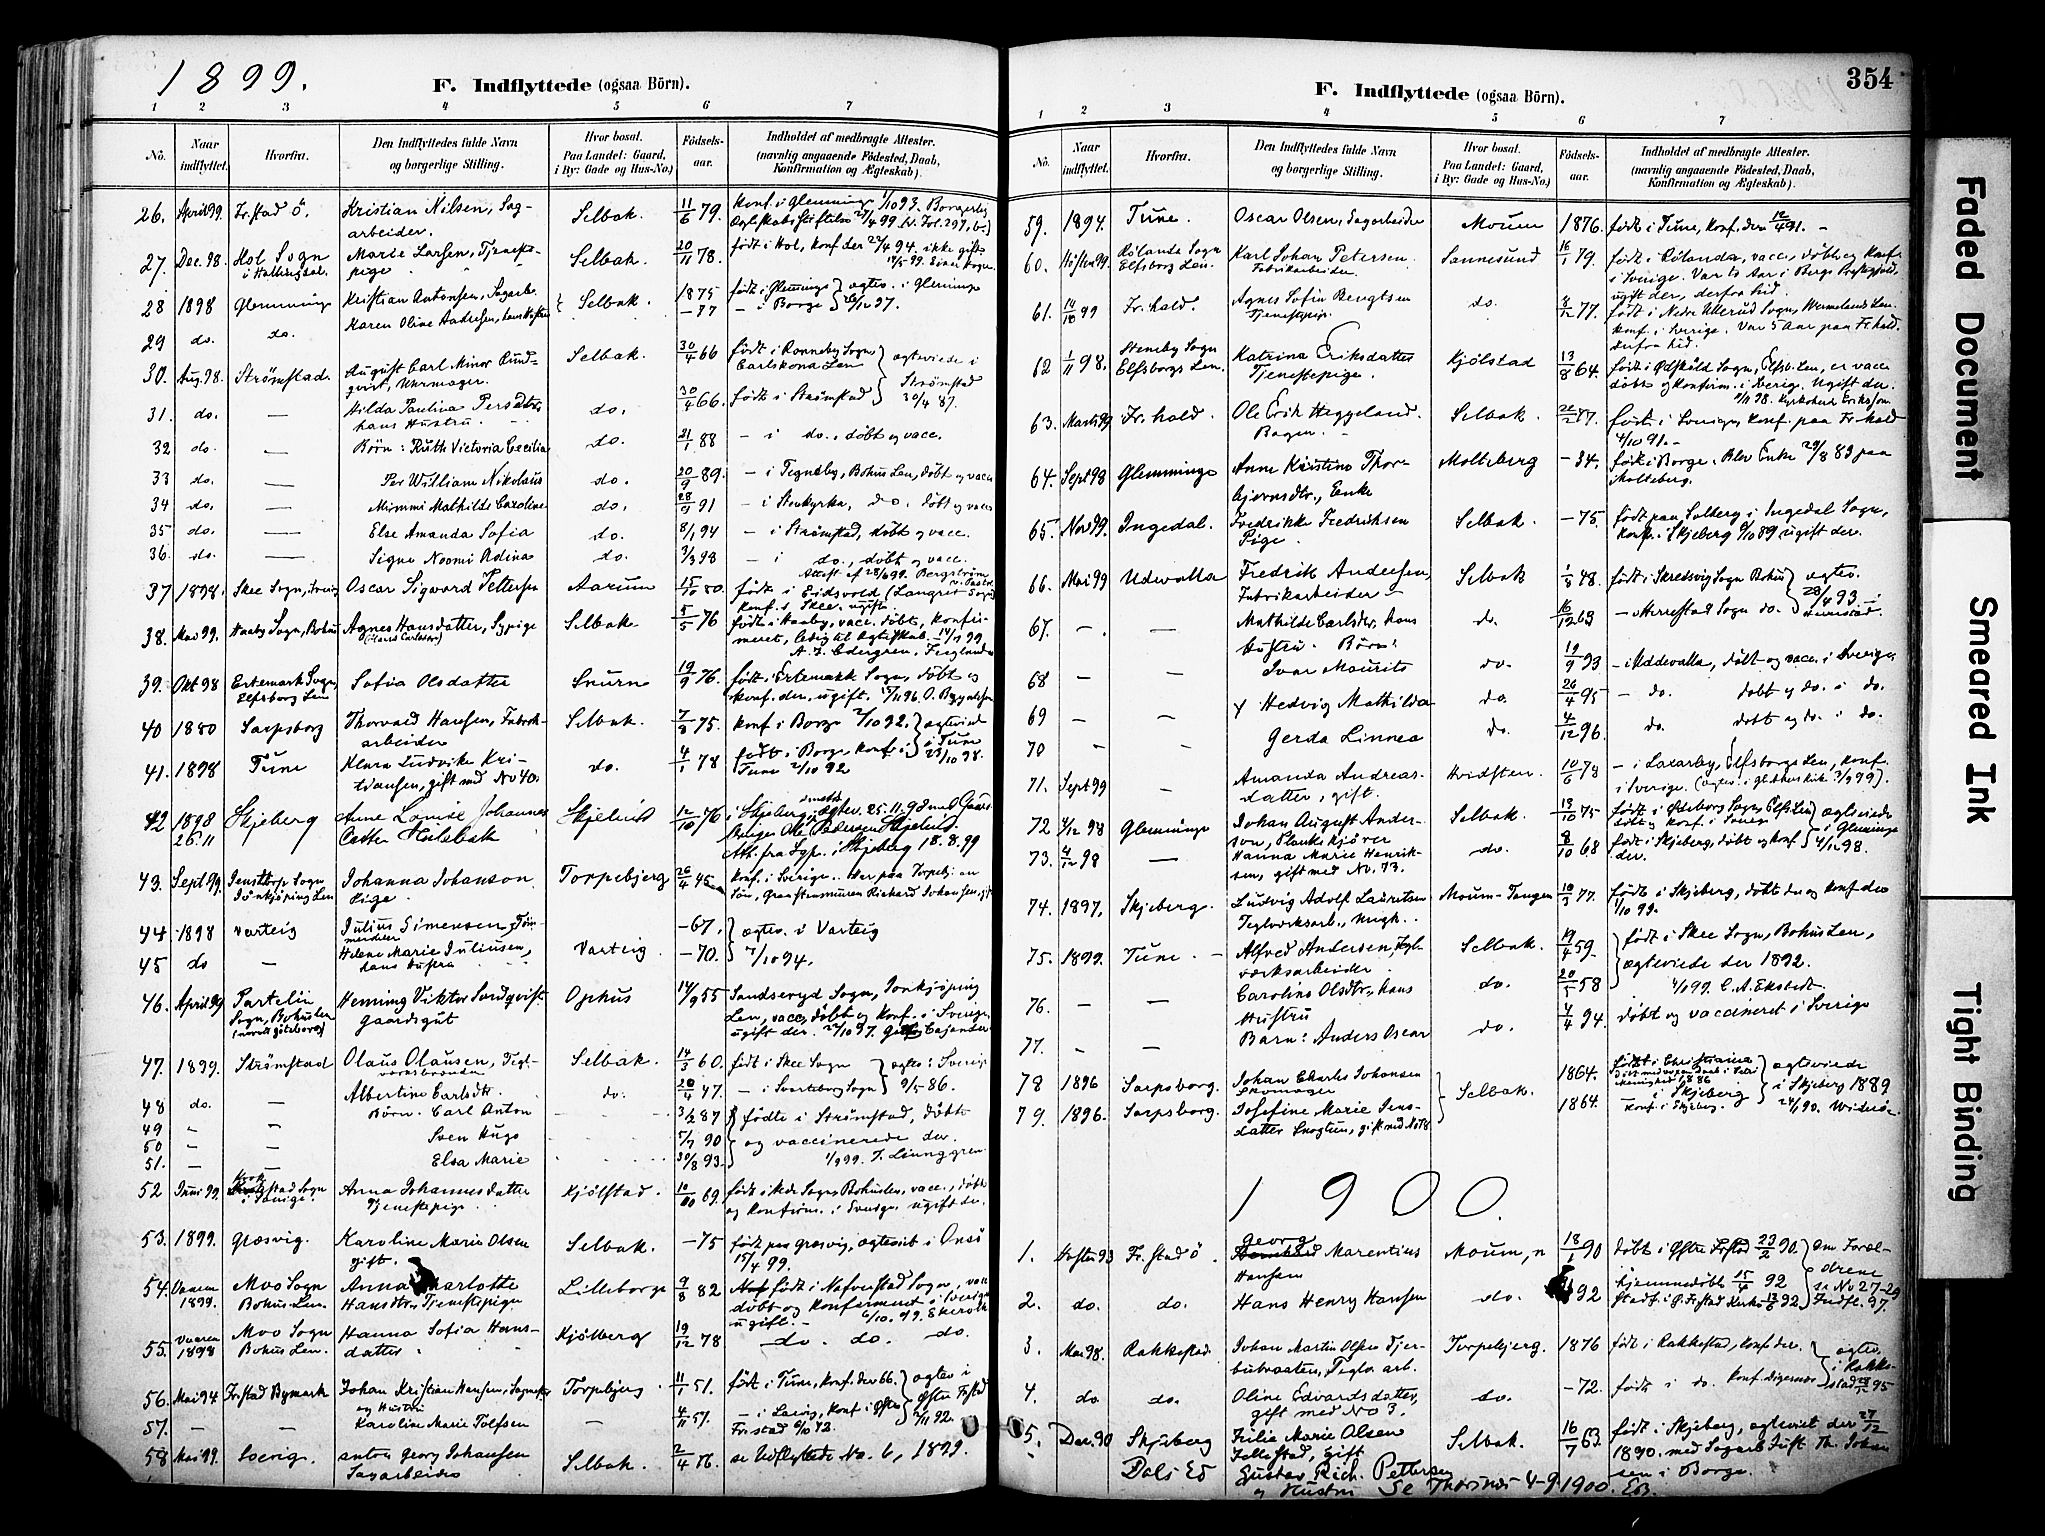 1899.
F. Indflyttede (ogsaa Börn).
1 2 3 4 5 6 7
No. Naar indflyttet. Hvorfra. Den Indflyttedes fulde Navn og borgerlige Stilling. Hvor bosat. Paa Landet: Gaard, i By: Gade og Hus-No.) Födsels-aar. Indholdet af medbragte Attester. (navnlig angaaende Födested, Daab, Konfirmation og Ægteskab).
26. April 99. Fr.stad Ö. Kristian Nilsen, Sag-
arbeider. Selbak. 11/6 79. konf. i Glemminge 1/10 93.
27. Dec. 98. Hol Sogn i Hallingdal. Marie Larsen, Tjeneste-
pige Selbak. 20/11 78. født i Hol, konf. der 24/4 94. ikke gift.
28 1898 Glemminge Kristian Antonsen, Sagarb. Selbak. 1875 født i Glemminge ægtev. i Glemminge
29 do. do. Karen Oline Andresen, hans Hustru - 77 - i Borge
30. Aug. 98. Strømstad. August Carl Minor Rund-
qvist, Uhrmager. Selbak. 30/4 66 født i Ronneby Sogn Carlskrona Len ægteviede i Strømstad 30/4 87.
31. do. — Hilda Paulina Persdtr.
hans Hustru. do. 30/4 66. født i Strømstad
32 do. — Børn: Ruth Victoria Cecilia do. 21/1 88 - i do., døbt og vacc.
33 do. — Per William Nikolaus do. 20/9 89. - i Tegneby, Bohus Len, døbt og vacc.
34 do. — Mimmi Mathilde Caroline do. 28/9 91 - i Stenkyrka, do. døbt og vacc.
35 do. — Else Amanda Sofia do. 8/1 94 - i Strømstad, døbt og vacc.
36. do. — Signe Noomi Rdina do. 3/3 98 - i do., døbt og vacc.
37 1898. Skee Sogn, Sverig Oscar Sigvard Pettersen Aarum 15/10 80. født i Eidsvold (Langset Sogn)
konf. i Skee. ugift.
38. Mai 99. Haaby Sogn, Bohus Agnes Hansdatter, Sypige Selbak 5/5 76 født i Haaby, vacc. døbt, konfir-
meret, ledig til Ægteskab. 14/1 99
39. Okt 98 Ertemark Sogn, Elfsborg Len Sofia Olsdatter Snurn 19/9 76. født i Ertemark Sogn, døbt og
konf. der, ugift.
40 1880 Sarpsborg Thorvald Hansen, Fabrik-
arbeider Selbak. 7/8 75. konf. i Borge 2/10 92. ægteviet i Tune 23/10 98.
41. 1898 Tune Klara Ludvike Kri-
stiansen, gift med No 40. do. 4/1 78 født i Borge, konf. i
Tune 2/10 92
42 1898 26.11 Skjeberg Anne Lovise Johannes-
datter Hulebak Skjelin 12/10 76 i Skjeberg, ægtev. 25.11.98 med Gaard-
Att. fra Sgp. i Skjeberg 18.8.99
43. Sept 99. Jenstorp Sogn Jönkjöping Len Johanna Johanson
Pige. Torpebjerg 26/4 45 konf. i Sverige.
44 1898 Varteig Julius Simensen - 67. ægtev. i Varteig
45 do — Helene Marie Juliusen,
hans Hustru Varteig - 70. 7/10 94.
46. April 99 Partelin Sogn, Bohuslen Henning Viktor Sandqvist
Gaardsgut Ophus 14/9 55 Sandseryd Sogn, Jonkjöping
Len, vacc., døbt og konf. i Sverige,
47. 1899. Strømstad Olaus Olausen, Tegl-
værksbrænder Selbak. 14/3 60. født i Skee Sogn ægtev. i Sverige
48 do. — Albertine Carlsdtr. do. 20/4 47. - i Svarteborg Sogn 9/5 86.
49 - - Børn: Carl Anton 3/2 87 fødte i Strømstad, døbte
50 - - Sven Hugo 5/7 90 og vaccinerede der.
51. — — Elsa Marie 30/8 93. 1/9 99. J. Ljunggren
52 Juni 99. Krokstad Sogn i Sverige. Anna Johannesdatter
Tjenestepige Kjölstad. 10/10 69.
og konfirm. i Sverige, ugift der.
53. 1899. Græsvig. Karoline Marie Olsen
gift. Selbak. - 75 født paa Græsvig, ægteviet i Onsö
15/4 99.
54. Vaaren 1899. Moo Sogn Bohus Len. Anna Charlotte
Hansdtr. Tjenestepige Lilleborge 9/8 82 født i Naverstad Sogn, vacc.
døbt og konfirmeret i Sverige
ugift.
55. Vaaren 1898 Moo Sogn Bohus Len. Hanna Sofia Hans-
datter Kjölberg 19/12 78 do. do. do.
56. Mai 94 Fr.stad Bymark Johan Kristian Hansen
og Hustru Torpebjerg 11/1 51. født i Tune, konf. der 66. ægtev i Østre Fr.stad 9/11 92.
57. — — Karoline Marie Tolfsen — 4/11 57. - i Larvig, konf. i Østre
Fr.stad 6/10 72.
58 Mai 99. Sverig. Anton Georg Johansen
Sagarbeider Selbak. 2/4 76. se Udflyttede No. 6, 1899.
354
F. Indflyttede (ogsaa Börn).
1 2 3 4 5 6 7
No. Naar indflyttet. Hvorfra. Den Indflyttedes fulde Navn og borgerlige Stilling. Hvor bosat. Paa Landet: Gaard, i By: Gade og Hus-No.) Födsels-aar. Indholdet af medbragte Attester. (navnlig angaaende Födested, Daab, Konfirmation og Ægteskab).
59. 1894. Tune. Oscar Olsen, Sagarbeider Moum 1876. født i Tune, konf. den 12/4 91. -
60. Høsten 99. Rölanda Sogn Elfsborg Len. Karl Johan Petersen
Fabrikarbeider Sannesund 16/1 79. født i Rölanda, vacc., døbt og konf.
i Sverige. Var 1½ Aar i Berge Prestegjeld.
ugift der, derfra hid.
61. 14/10 99 Fr.hald. Agnes Sofia Bengtsen
Tjenestepige. do. 8/12 77. født i Nedre Ullerud Sogn, Wermelands Len.
konf. i Sverige. Var 5 Aar paa Fr.hald.
derfra hid.
62 1/11 98. Steneby Sogn Elfsborgs Len. Katrina Eriksdatter
Tjenestepige. Kjölstad 13/8 64. født i Ödskölt Sogn, Elfsb. Len, er vacc
døbt og konfirm. i Sverig. Ugift der.
63. Marts 99 Fr.hald. Ole Erik Heggeland.
Bager. Selbak. 22/2 77. født i Sverige, konf. paa Fr.hald
4/10 91.
64. Sept 98 Glemminge Anne Kristine Thor-
bjørnsdtr., Enke Molteberg - 34. født i Borge. Blev Enke 29/8 83 paa
Molteberg.
65. Nov 99. Ingedal. Fredrikke Fredriksen
Pige. Selbak. - 75. født paa Solberg i Ingedal Sogn,
konf. i Skjeberg 9/10 89 ugift der.
66. Mai 99 Udevalla Fredrik Andersen,
Fabrikarbeider Selbak 1/8 48. født i Skredsvig Sogn Bohus ægtev. 28/4 93 i
67. - — Mathilde Carlsdtr, hans
Hustru. Børn: do. 16/12 63 - Herrestad Sogn do.
68 - - Ivar Maurits do. 19/9 93 - i Uddevalla, døbt og vacc. i Sverige
69 - - Hedvig Mathilda do. 26/4 95 - do. døbt og do. i do.
70 - - Gerda Linnea do. 4/12 96. do. døbt og do. i do.
71. Sept 99 - Amanda Andreas-
datter, gift. Hvidsten. 10/6 78 - i Laxarby, Elfsborgs Len, konf.
i Sverige.
72 4/12 98 Glemminge Johan August Ander-
son, Plankekjører Selbak. 13/10 75 født i Ödeborg Sogn, Elfs Len ægteviede i Glemminge 4/12 98.
døbt og konf. i Sverig
73. 4/12 98 — Hanna Marie Henrik-
sen, gift med No. 73. do. 8/10 68 født i Skjeberg, døbt og konf
der.
74. 1897. Skjeberg. Ludvig Adolf Lauritsen
Teglverksarb., ungk. Moum-Tangen 10/3 77. født i Skjeberg, døbt der og konf. der
1/10 93.
75. 1899. Tune. Alfred Andersen, Tegl-
værksarbeider. Selbak. 19/4 59. født i Skee Sogn, Bohus Len,
ægteviede der 1892.
76. — — Caroline Olsdtr., hans
Hustru do. 20/5 58 C. A. Ekstedt
77. — — Barn: Anders Oscar do. 4/4 94. døbt og vaccineret i Sverige
78 1896 Sarpsborg. Johan Charles Johansen
Skomager Selbak. 1864. født i Christiania ægteviede i Skjeberg 1889
79. 1896. Sarpsborg. Josefine Marie Jens-
datter Snogtun, gift med No 78 1864. i Skjeberg
konf. i Skjeberg.
1900.
1. Høsten 93 Fr.stad Ö. Georg Marentius
Hansen Moum, n 18/1 90 døbt i Østre Fr.stad 23/2 90. Om Foræl-
drene se No 27-29 Indfl. 97.
2. do. do. Hans Henry Hansen do. 92 hjemmedøbt 15/4 92
3. Mai 98. Rakkestad. Johan Martin Olsen Tjer-
bubraaten, Teglv. arb. Torpebjerg. 1876 født i Rakkestad, konf. der. ægtev. i Rakke-
stad 95
4. do. do. Oline Edvardsdatter,
gift med No 3. do. - 72. født i do. konf.
5. Dec. 90 Skjeberg Julie Marie Olsen
gift Selbak. 16/7 63. født i Skjeberg, ægteviet der 27/12
1890. med Sagarb. Just Th. Johan-
sen i Borge.
Dals Ed Gustav Rich. Pettersen
og Hustru Se 4-9 1900.
Faded Document
Smeared Ink
Tight Binding